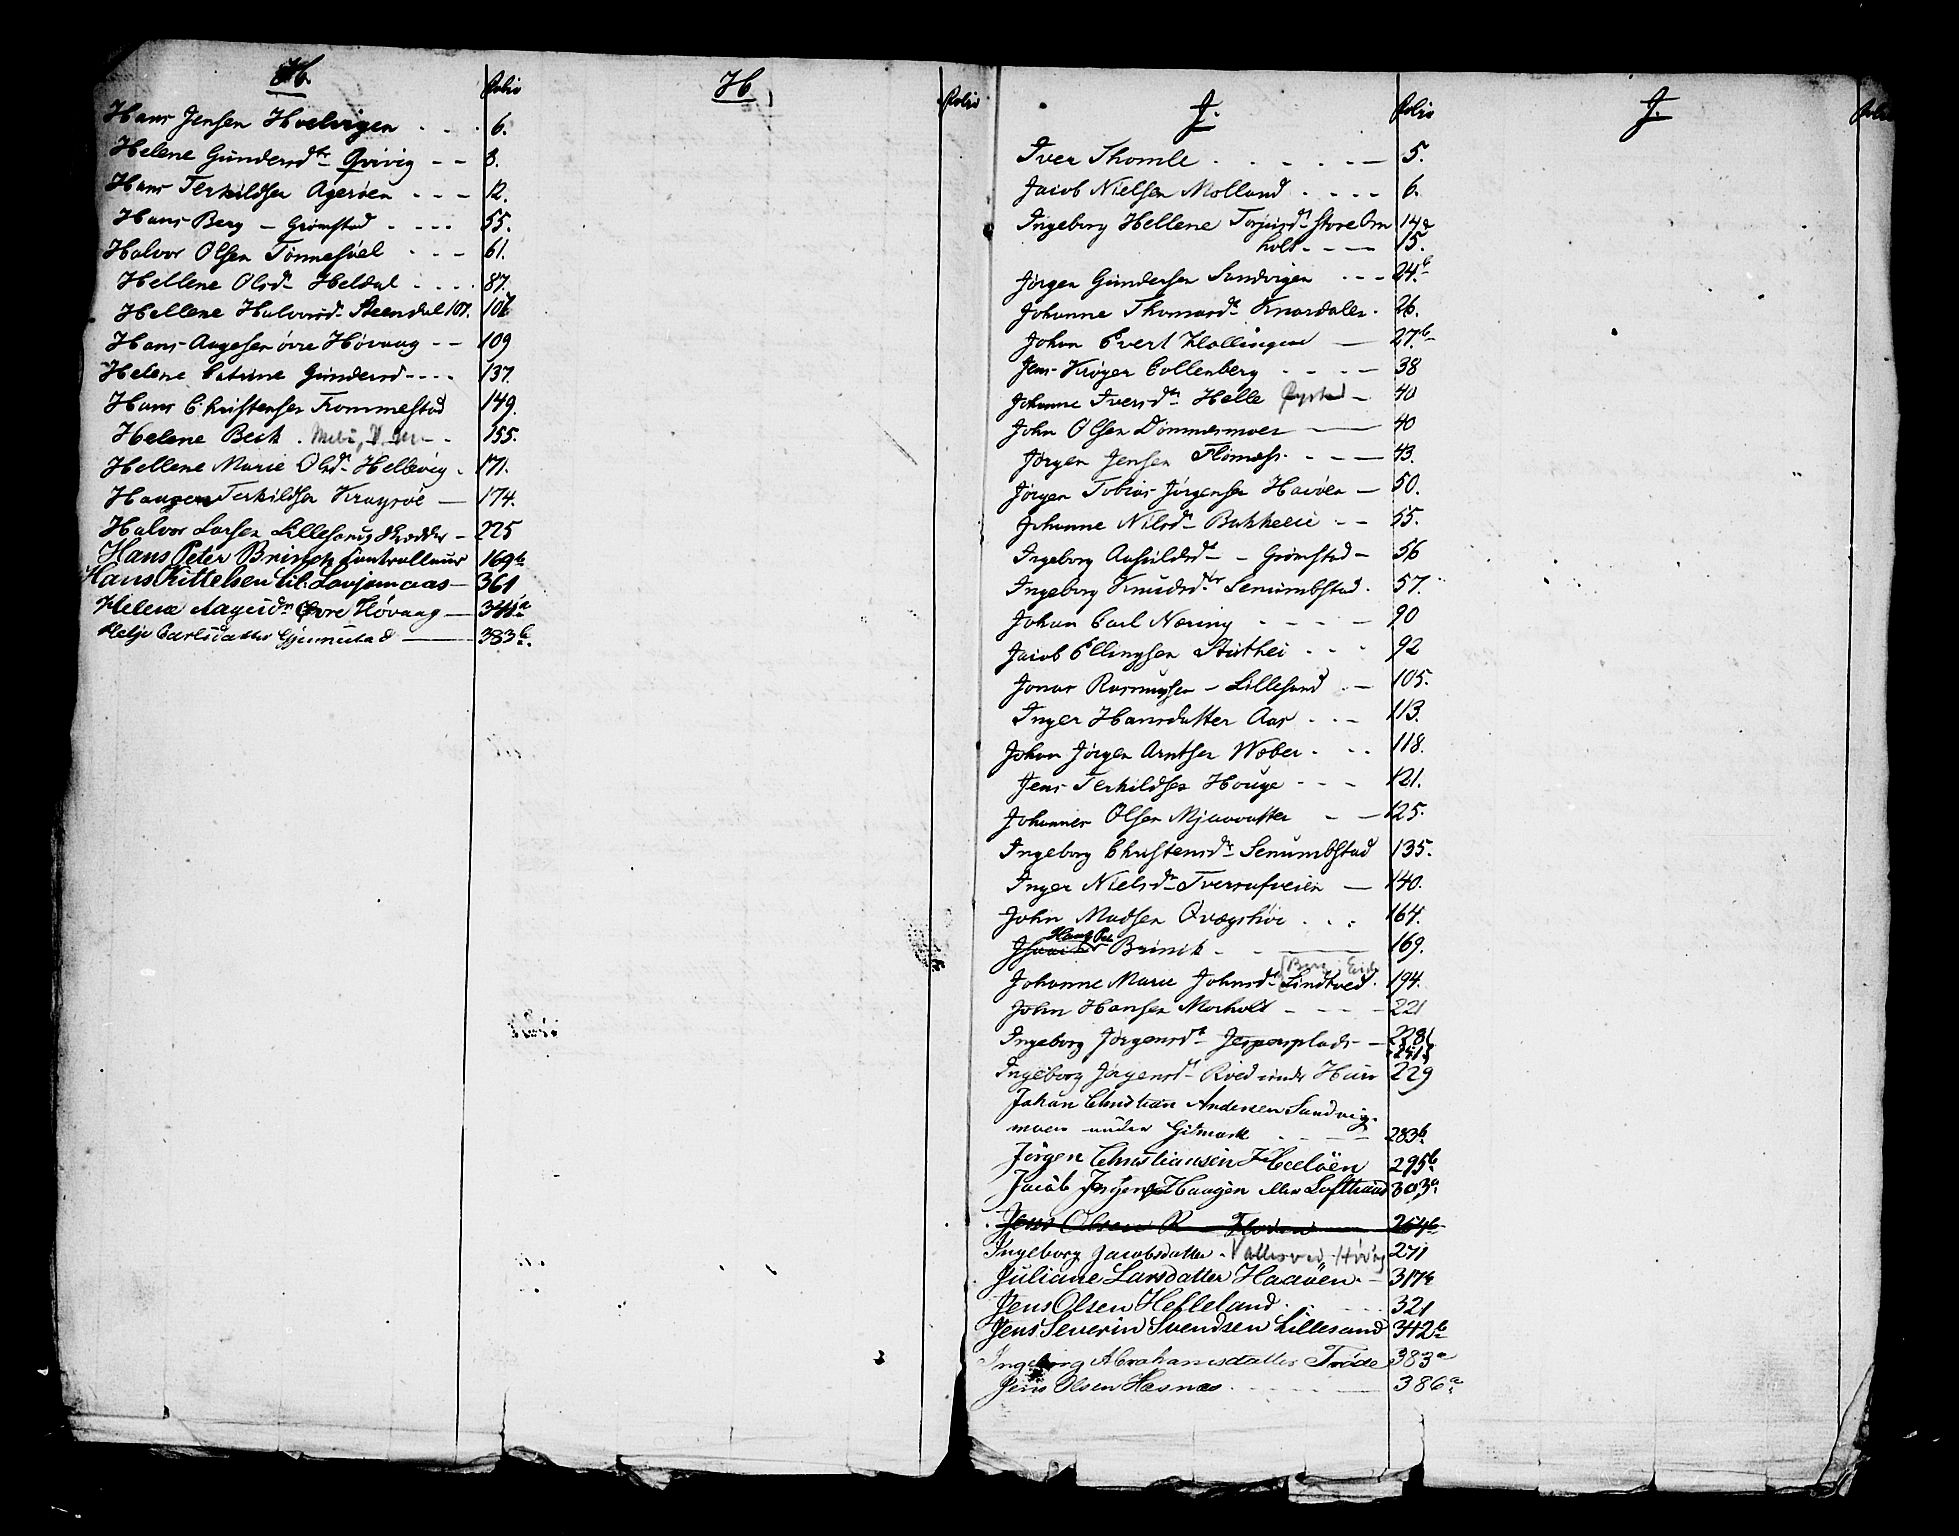 H.
Folio
Hans Jensen Hvelvigen . . . . 6.
Helene Gundersdtr Qvivig - - 8.
Hans Terkildsen Agerøen - - - 12.
Hans Berg - Grømstad - - - - 55.
Halvor Olsen Tønnesøel - - - 61.
Hellene Olsdr Heldal - - - . 87.
Hellene Halvorsdr Steendal 107. 106
Hans Aagesen øvre Høvaag - - 109
Helene Catrine Gundersd - - - - 137.
Hans Christensen Trommestad 149.
Helene Beck . - - 155.
Hellene Marie Olsdr Hellevig . 171.
Haagen Terkildsen Kragsøe — 174.
Halvor Larsen Lillesand - 225
Hans Peter Brinch Controlleur 169b
Hans Kittelsen Lavjomaas — 361
Helene Aagesdr Øvre Høvaag — 344a
Carlsdatter Gjennestad — 383b.
H
Folio
J.
Folio
Iver Thomle . . - . . - — 5.
Jacob Nielsen Molland . . - - 6.
Ingeborg Hellene Torjusdr Store Om 14a
holt - - — 15.
Jørgen Gundersen Sandvigen - - - 24.b
Johanne Thomasdr Knardalen . 26.
Johan Evert Kollingen — 27.b
Jens Krøyer Collenberg - - - — 38
Johanne Iversdtr Helle - 40
John Olsen Dømmesmoen — — 40
Jørgen Jensen Flømess. - - — 43.
Jørgen Tobias Jørgensen Haaøen — 50.
Johanne Nilsdr Bakkeeie - - 55.
Ingeborg Aasuldsdr - Grømstad - 56
Ingeborg Knudsdtr Senumbstad . 57.
Johan Carl Næring - - - — 90
Jacob Ellingsen Studthei - - - 92
Jonas Rasmussen - Lillesand . — 105.
Inger Hansdatter Aas . - — 113.
Johan Jørgen Arntsen Wæber . - - 118.
Jens Terkildsen Houge - - - 121.
Johannes Olsen Mjaavatten — 125.
Ingeborg Christensdr Senumbstad 135.
Inger Nielsdr Tverrufveien — 140.
John Madsen Qvægshøi . . : 164.
Hans Pet.
Brinch - - — 169.
Johanne Marie Johnsdr Lindtved. 194.
John Hansen Morholt - - - 221
Ingeborg Jørgensdr Jespersplads - 228
251
Ingeborg Jørgensdr Roed under 229
Johan Christian Andersen Sandvig
moen under Gitmark 283b
Jørgen Christiansen Heeløen 295b
Jacob Haagen eller Loftsund 303a
Jens Olsen 264b
Ingeborg Jacobsdatter . Vallesverd Høvåg 271
Juliane Larsdatter Haaøen. - 317a
Jens Olsen Hefteland . 321
Jens Severin Svendsen Lillesand 342b
Ingeborg Abrahamsdatter Trøde 383a
Jens Olsen Hæsnæs . - - - — 386a
J.
Folio